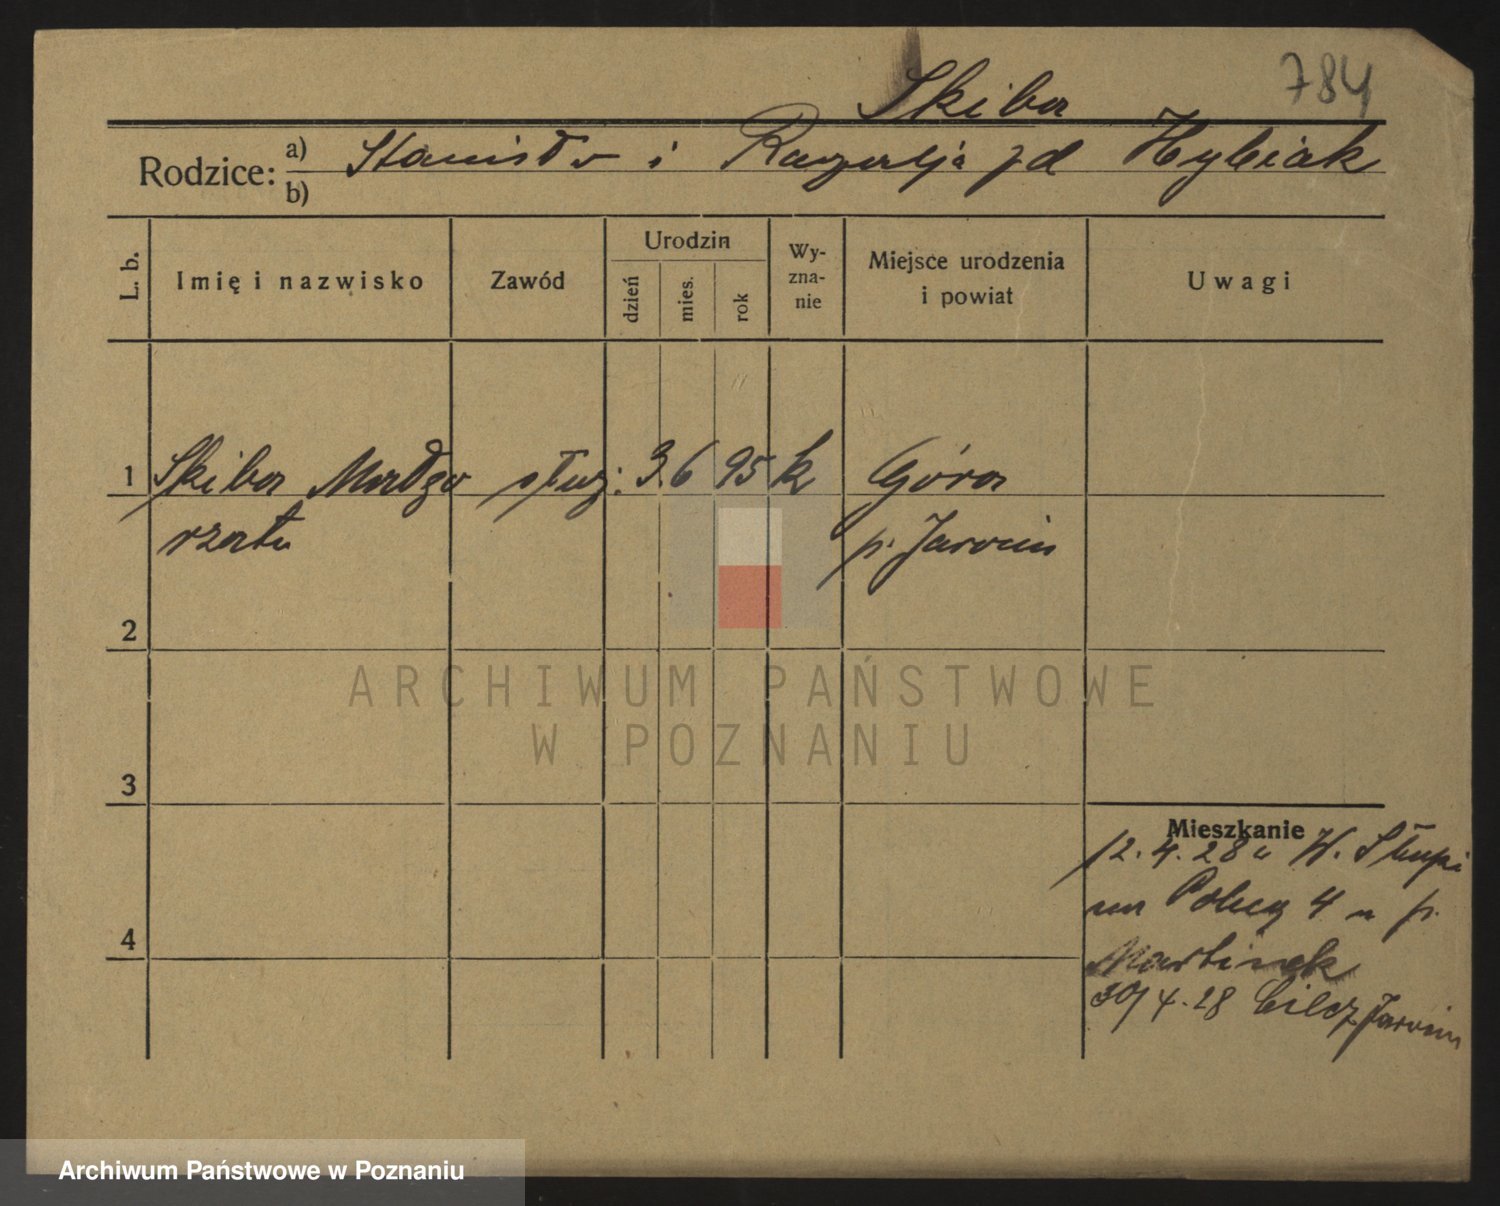 784
Skiba
Rodzice: a) Stanisław i Rozalja zd Hybiak
b)
L. b. Imię i nazwisko Zawód Urodzin dzień mies. rok Wy-zna-nie Miejsce urodzenia i powiat Uwagi
1 Skiba Małgo służ. 3. 6 95 k Góra
rzata p. Jarocin
2
ARCHIWUM PAŃSTWOWE
W POZNANIU
3
Mieszkanie
12. 4. 28 W. Słupi
4 u p.
4
Martinek
30/4.28 Jarocin
Archiwum Państwowe w Poznaniu